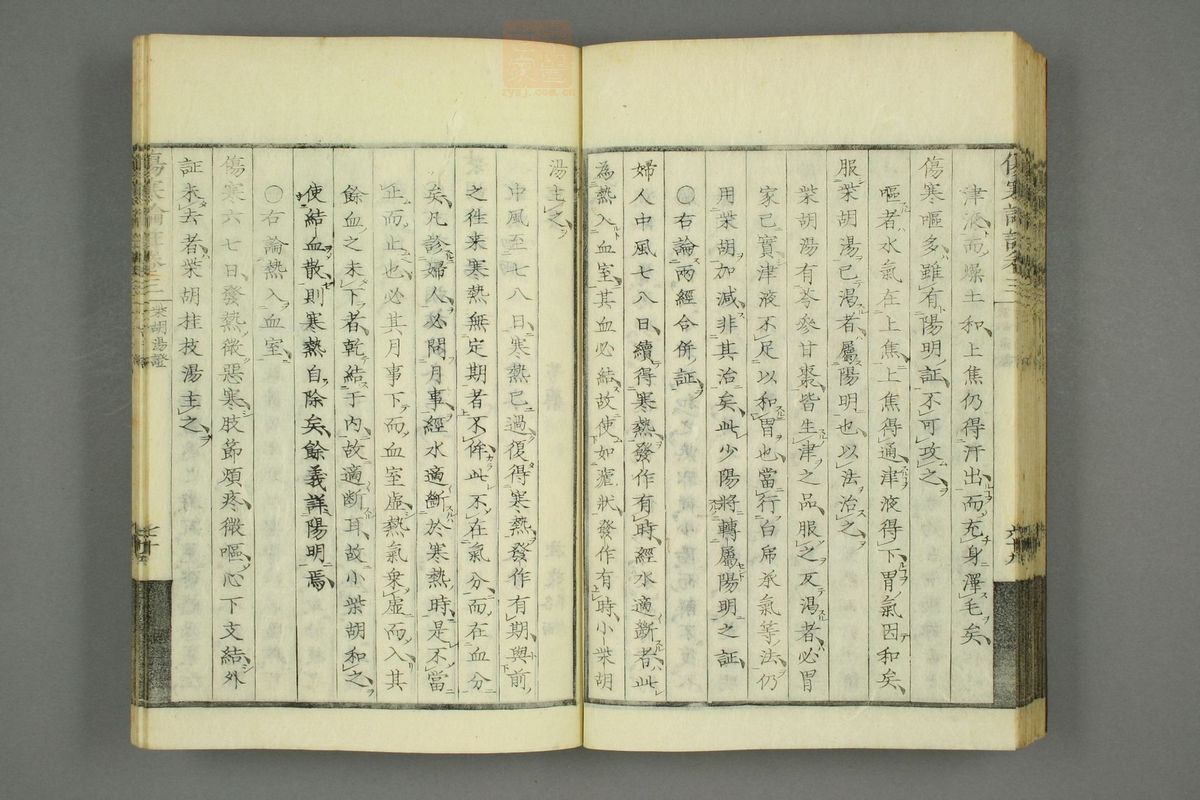 津液而燥土和上焦仍得汗出而充身澤毛矣
傷寒嘔多雖有陽明証不可攻之
嘔者水氣在上焦上焦得通津液得下胃氣因和矣
服柴胡湯已渴者屬陽明也以法治之
柴胡湯有芩參甘棗皆生津之品服之反渴者必胃
家已實津液不足以和胃也當行白虎承氣等法仍
用柴胡加減非其治矣此少陽將轉屬陽明之証
○右論兩經合併証
婦人中風七八日續得寒熱發作有時經水適斷者此
為熱入血室其血必結故使如瘧狀發作有時小柴胡
湯主之
中風至七八日寒熱已過復得寒熱發作有期與前
之徃来寒熱無定期者不侔此不在氣分而在血分
矣凡診婦人必問月事經水適斷於寒熱時是不當
止而止也必其月事下而血室虛熱氣乘虛而入其
餘血之未下者乾結于内故適断耳故小柴胡和之
使結血散則寒熱自除矣餘義詳陽明焉
○右論熱入血室
傷寒六七日發熱微惡寒肢節煩疼微嘔心下支結外
証未去者柴胡桂枝湯主之
柴胡湯證